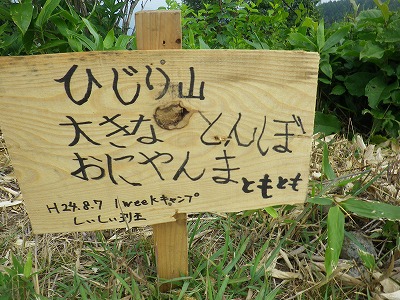 ひじり山
大きな とんぼ
おにやんま ともとも
H24.8.7 1weekキャンプ
しいしい